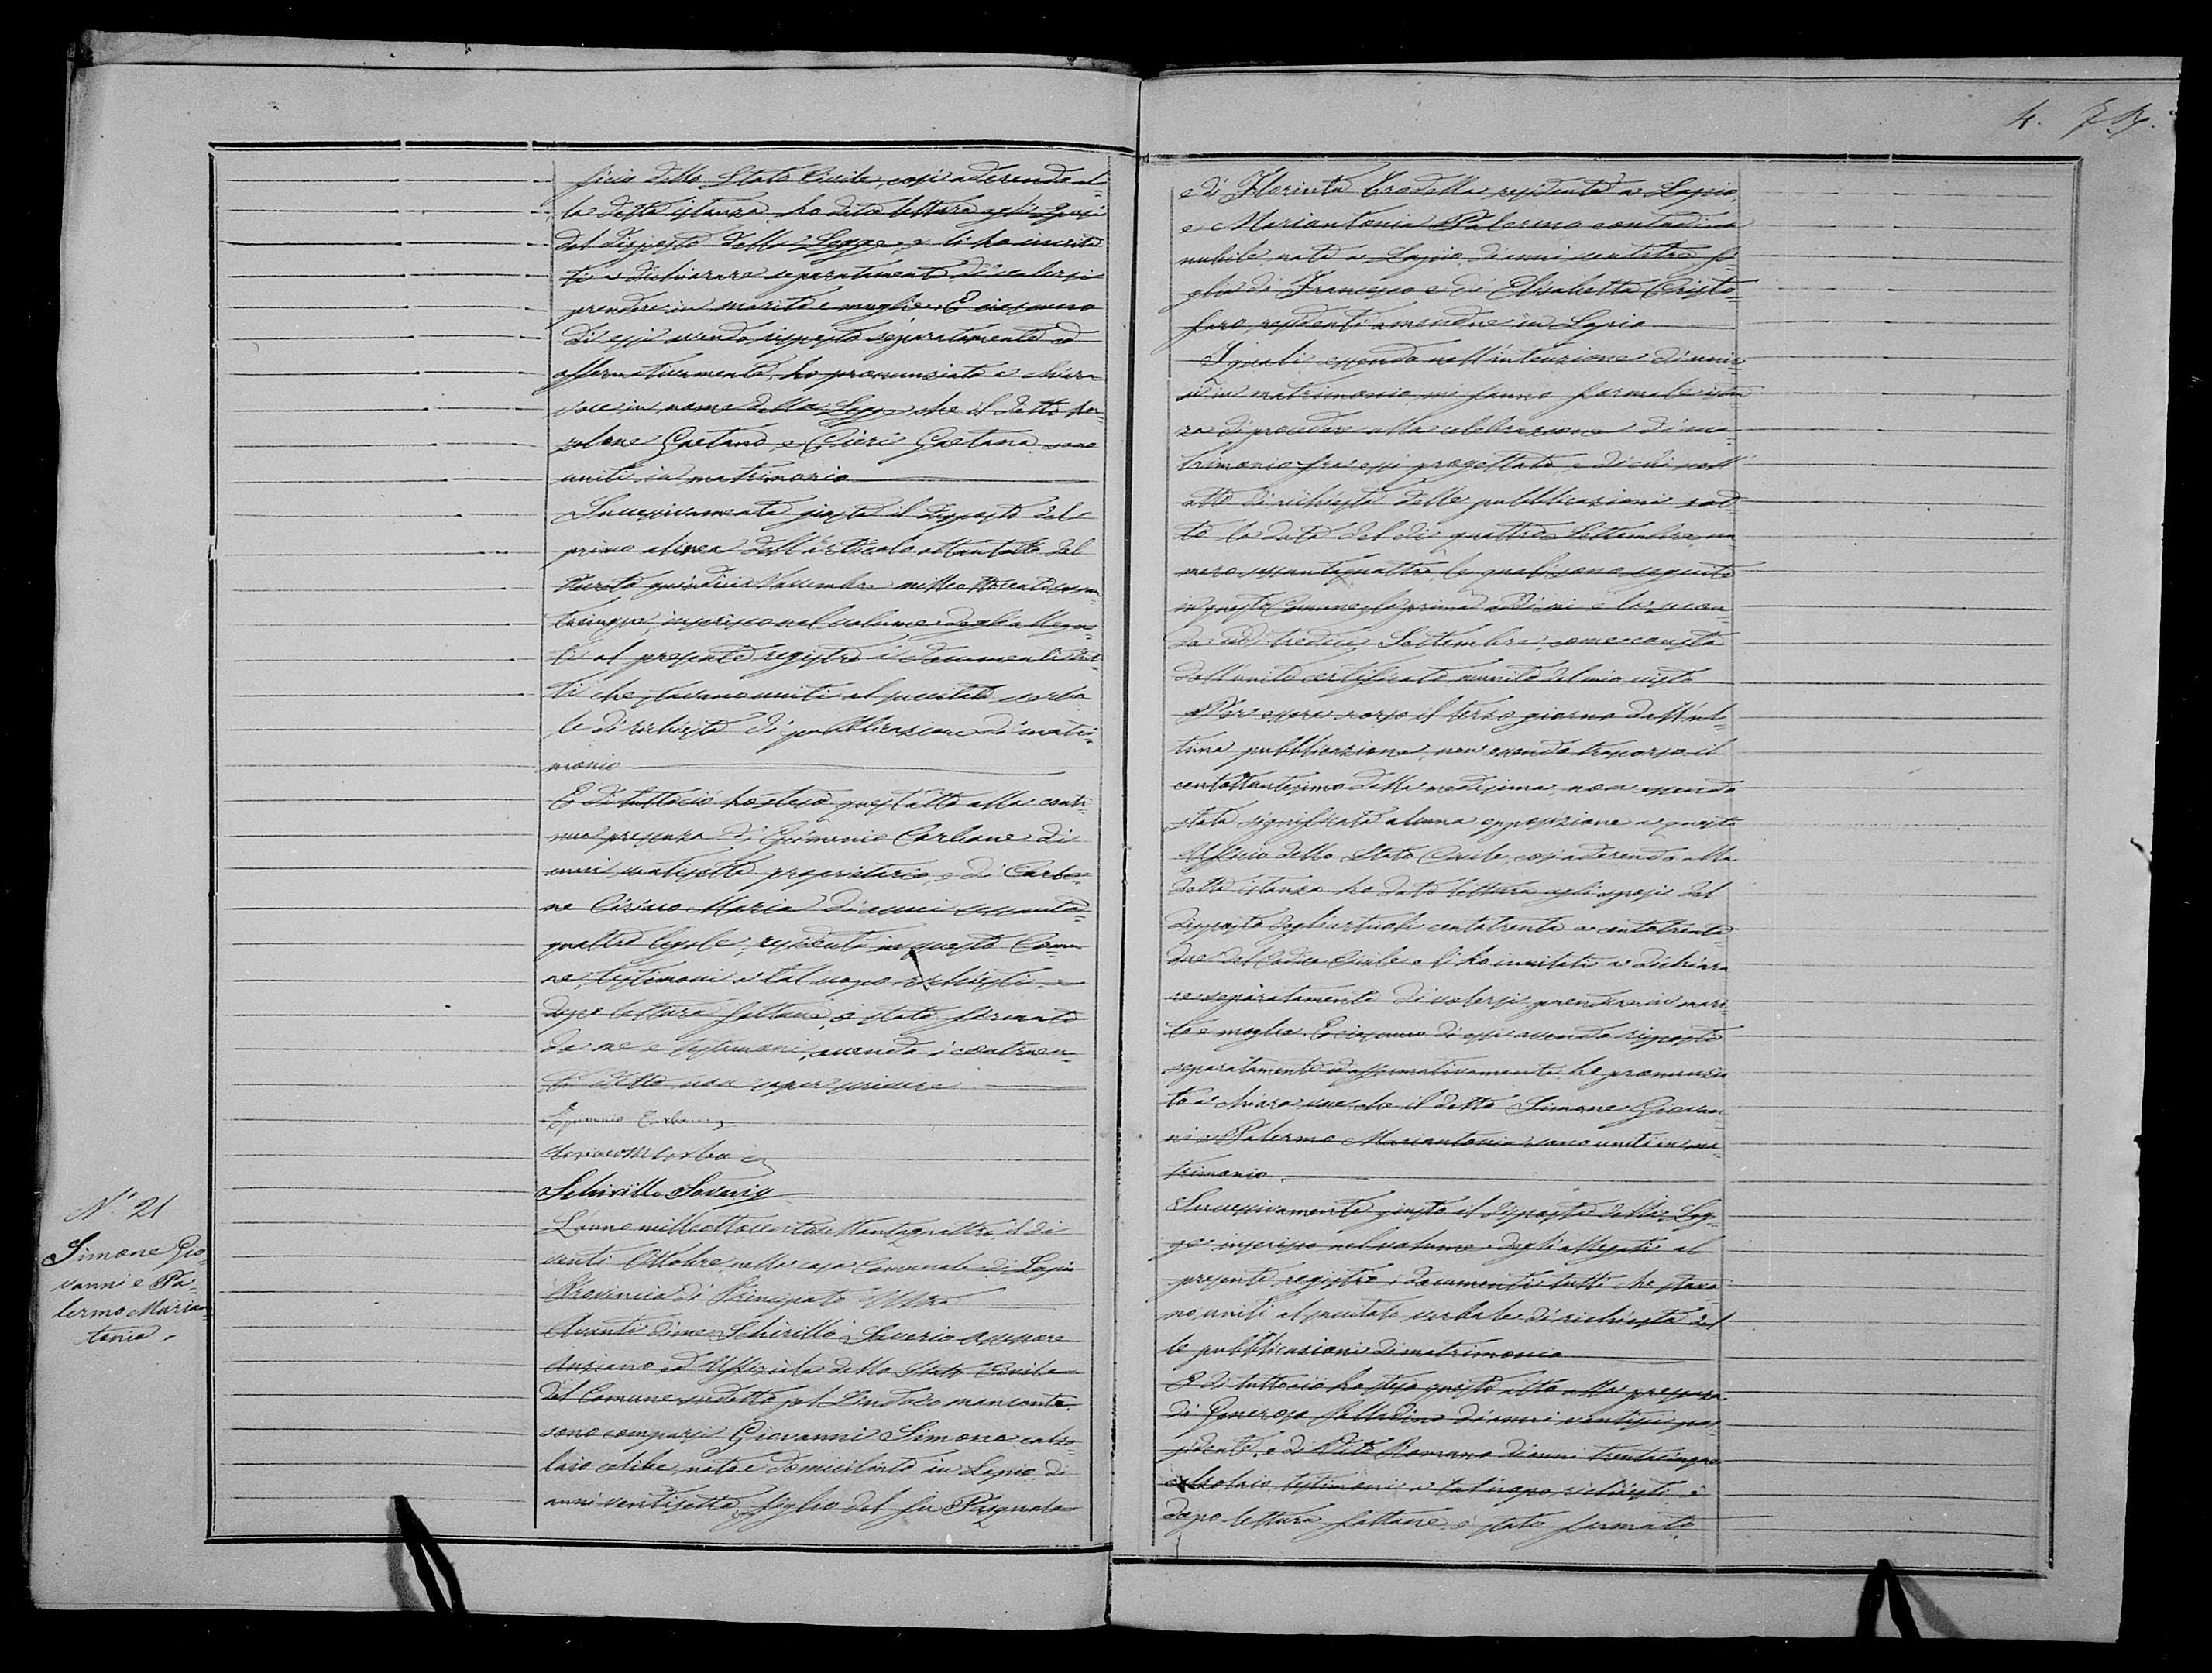 ficio dello Stato Civile, così aderendo al=
la detta istanza ho dato lettura agli sposi
del disposto della Legge, e li ho invita
ti a dichiarare separatamente di volersi
prendere in marito e moglie. E ciascuno
di essi avendo risposto separatamente ed
affermativamente, ho pronunziato a chiara
voce in nome della Legge che il detto
Gaetano, e Gaetana sono
uniti in matrimonio
Successivamente giusta il disposto del
primo alinea dell'articolo ottantotto del
Decreto quindici Novembre milleottocentosessan=
tacinque, inserisco nel volume degli allega=
ti al presente registro i documenti tut=
ti che stavano uniti al precitato verba
le di richiesta di pubblicazione di matri=
monio
E di tuttociò ho steso quest'atto alla conti=
nua presenza di Epimenio Carbone di
anni ventisette proprietario, e di Carbo=
ne Ciriaco Maria di anni sessanta=
quattro legale, residenti in questo Comu=
ne, testimoni a tal uopo richiesti, e
dopo lettura fattane, è stato firmato
da me e testimoni, avendo i contraen=
ti detto non saper scrivere
Epimenio Carbone
Ciriaco M Carbone
Schirillo Saverio
N.° 21
Simone Gio=
vanni e Pa=
lermo Marian=
tonia.
L'anno milleottocentosettantaquattro il dì
venti Ottobre nella casa Comunale di Lapio
Provincia di Principato Ultra
Avanti di me Schirillo Saverio assessore
Anziano ed Uffiziale dello Stato Civile
del Comune sudetto pel Sindaco mancante
sono comparsi Giovanni Simone calzo=
laio celibe nato e domiciliato in Lapio di
anni ventisette figlio del fu Pasquale
4. 7
e di Florinta residente a Lapio,
e Mariantonia Palermo contadina
nubile nata a Lapio di anni ventitre fi=
glia di Francesco e di Elisabetta Cristo=
faro residenti amendue in Lapio
I quali essendo nell'intenzione d'unir
si in matrimonio mi fanno formale istan
za di procedere alla celebrazione di ma=
trimonio fra essi progettato, e di cui nell'
atto di richiesta delle pubblicazioni sot
to la data del dì quattro Settembre nu
mero sessantaquattro, le quali sono seguite
in questo Comune, la prima a dì sei e la secon=
da a dì tredici Settembre, come consta
dall'unito certificato munito del mio visto
Per essere scorso il terzo giorno dall'ul=
tima pubblicazione, non essendo trascorso il
centottantesimo della medesima, non essendo
stata significata alcuna opposizione a questo
Uffizio dello Stato Civile, così aderendo alla
detta istanza ho dato lettura agli sposi del
disposto degli articoli centotrenta a centotrenta=
due del Codice Civile e li ho invitati a dichiara
re separatamente di volersi prendere in mari=
to e moglie. E ciascuno di essi avendo risposto
separatamente ed affermativamente ho pronunzia
to a chiara voce che il detto Simone Giovan
ni e Palermo Mariantonia sono uniti in ma=
trimonio.
Successivamente giusto il disposto della Leg=
ge inserisco nel volume degli allegati al
presente registro i documenti tutti che stava
no uniti al precitato verbale di richiesta del
le pubblicazioni di matrimonio
E di tuttociò ho steso questo atto alla presenza
di Generoso Palladino di anni ventisei pos=
sidente, e di Vito Romano di anni trentacinque
calzolaio testimoni a tal'uopo richiesti e
dopo lettura fattane è stato firmato